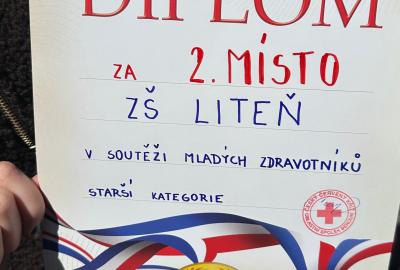 DIPLOM
ZA 2. MÍSTO
ZŠ LITEŇ
V SOUTĚŽI MLADÝCH ZDRAVOTNÍKŮ
STARŠÍ KATEGORIE
ČESKÝ ČERVENÝ KŘÍŽ